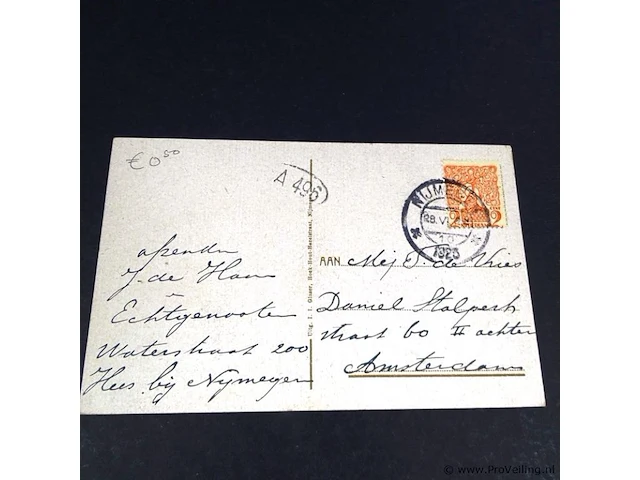 € 0 50
A 496
afzender
J. de Haan
Echtgenoote
Waterstraat 200
Hees bij Nijmegen
Uitg. J. J. Glaser,
NIJME
28. VI
1923
AAN Mej S. de Vries
Daniel Stalpert
straat 60 II achter
Amsterdam
© www.ProVeiling.nl